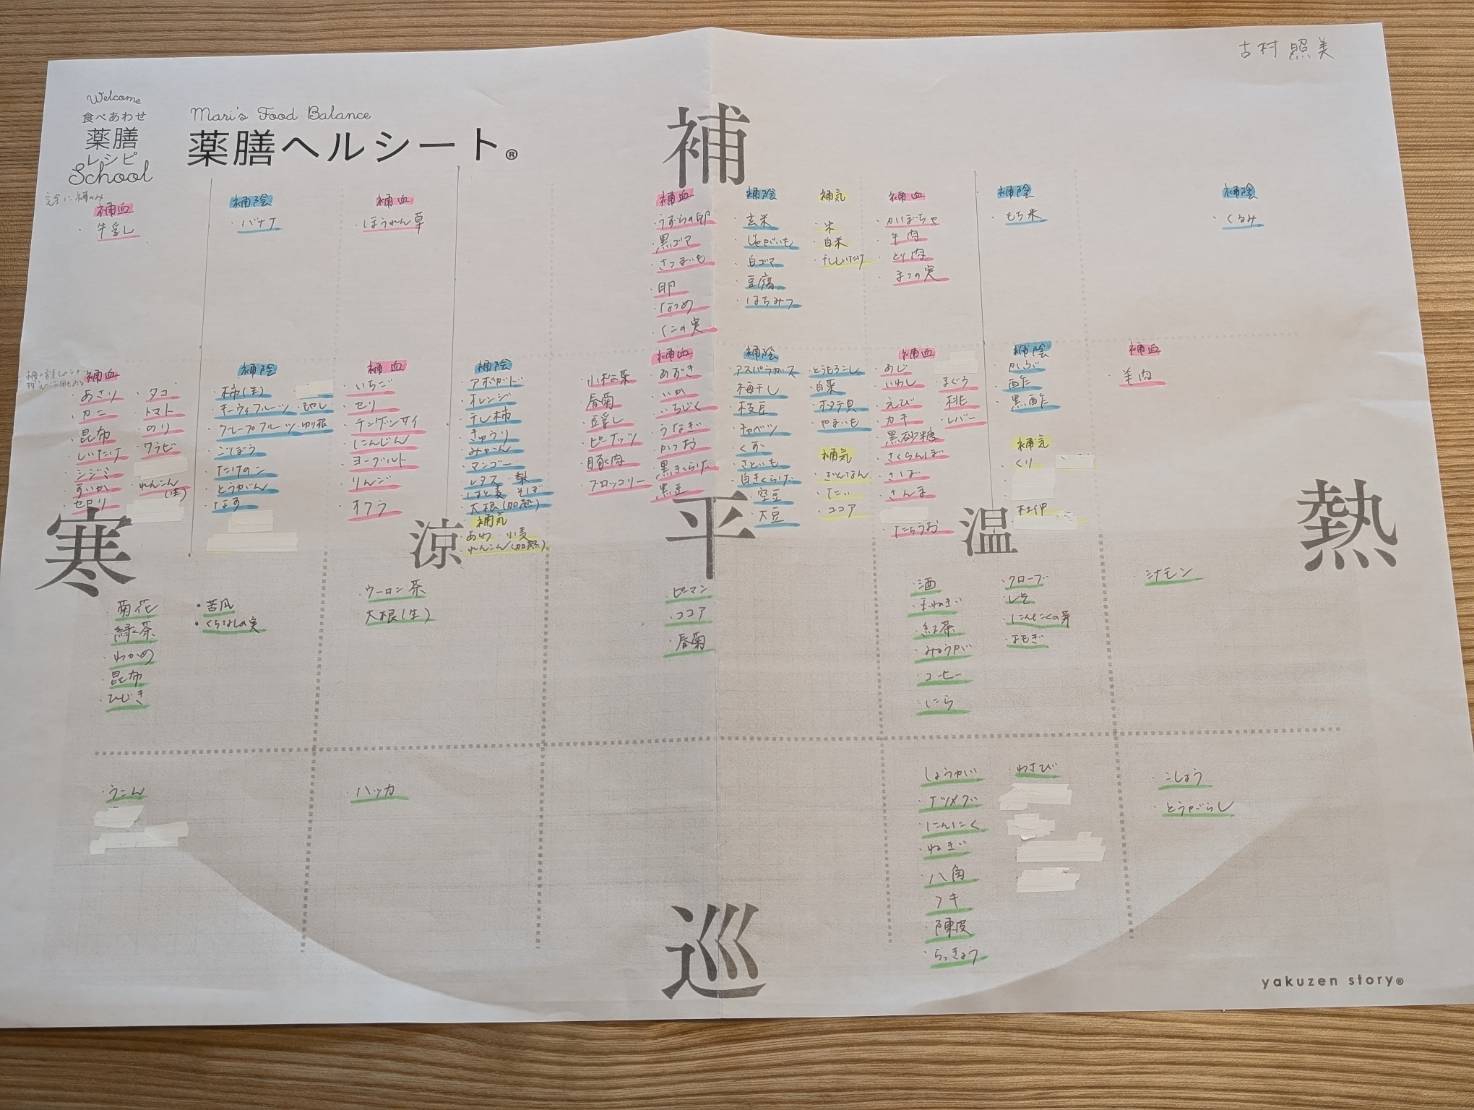 古村 照美
Welcome
食べあわせ
薬膳
レシピ
School
Mari's Food Balance
薬膳ヘルシート®
補
補血
牛乳
補陰
バナナ
補血
ほうれん草
補血
うずらの卵
黒ゴマ
さつまいも
卵
なつめ
くこの実
補陰
玄米
じゃがいも
白ゴマ
豆腐
はちみつ
補気
米
白米
干ししいたけ
補血
かぼちゃ
牛肉
とり肉
まつの実
補陰
もち米
補陰
くるみ
補血
あさり
カニ
昆布
しいたけ
シジミ
すいか
セロリ
タコ
トマト
のり
ワラビ
れんこん
(生)
補陰
柿(生)
キーウィフルーツ
グレープフルーツ ゆり根
ごぼう
たけのこ
とうがん
なす
補血
いちご
セリ
チンゲンサイ
にんじん
ヨーグルト
りんご
オクラ
補陰
アボカド
オレンジ
干し柿
きゅうり
みかん
マンゴー
レタス 梨
はと麦 そば
大根(加熱)
補気
あわ 小麦
れんこん(加熱)
小松菜
春菊
豆乳
ピーナッツ
豚肉
ブロッコリー
補血
あずき
いか
いちじく
うなぎ
かつお
黒きくらげ
黒豆
補陰
アスパラガス
梅干し
枝豆
キャベツ
くず
さといも
白きくらげ
空豆
大豆
とうもろこし
白菜
ホタテ貝
やまいも
補気
いんげん
たい
ココア
補血
あじ
いわし
えび
カキ
黒砂糖
さくらんぼ
さば
さんま
たちうお
まぐろ
桃
レバー
補陰
かぶ
酢
黒酢
補気
くり
杜仲
補血
羊肉
寒
涼
平
温
熱
菊花
緑茶
わかめ
昆布
ひじき
苦瓜
くちなしの実
ウーロン茶
大根(生)
ピーマン
ココア
春菊
酒
玉ねぎ
紅茶
みょうが
コーヒー
にら
クローブ
しそ
にんにくの芽
よもぎ
シナモン
うこん
ハッカ
しょうが
ナツメグ
にんにく
ねぎ
八角
フキ
陳皮
らっきょう
わさび
こしょう
とうがらし
巡
yakuzen story®